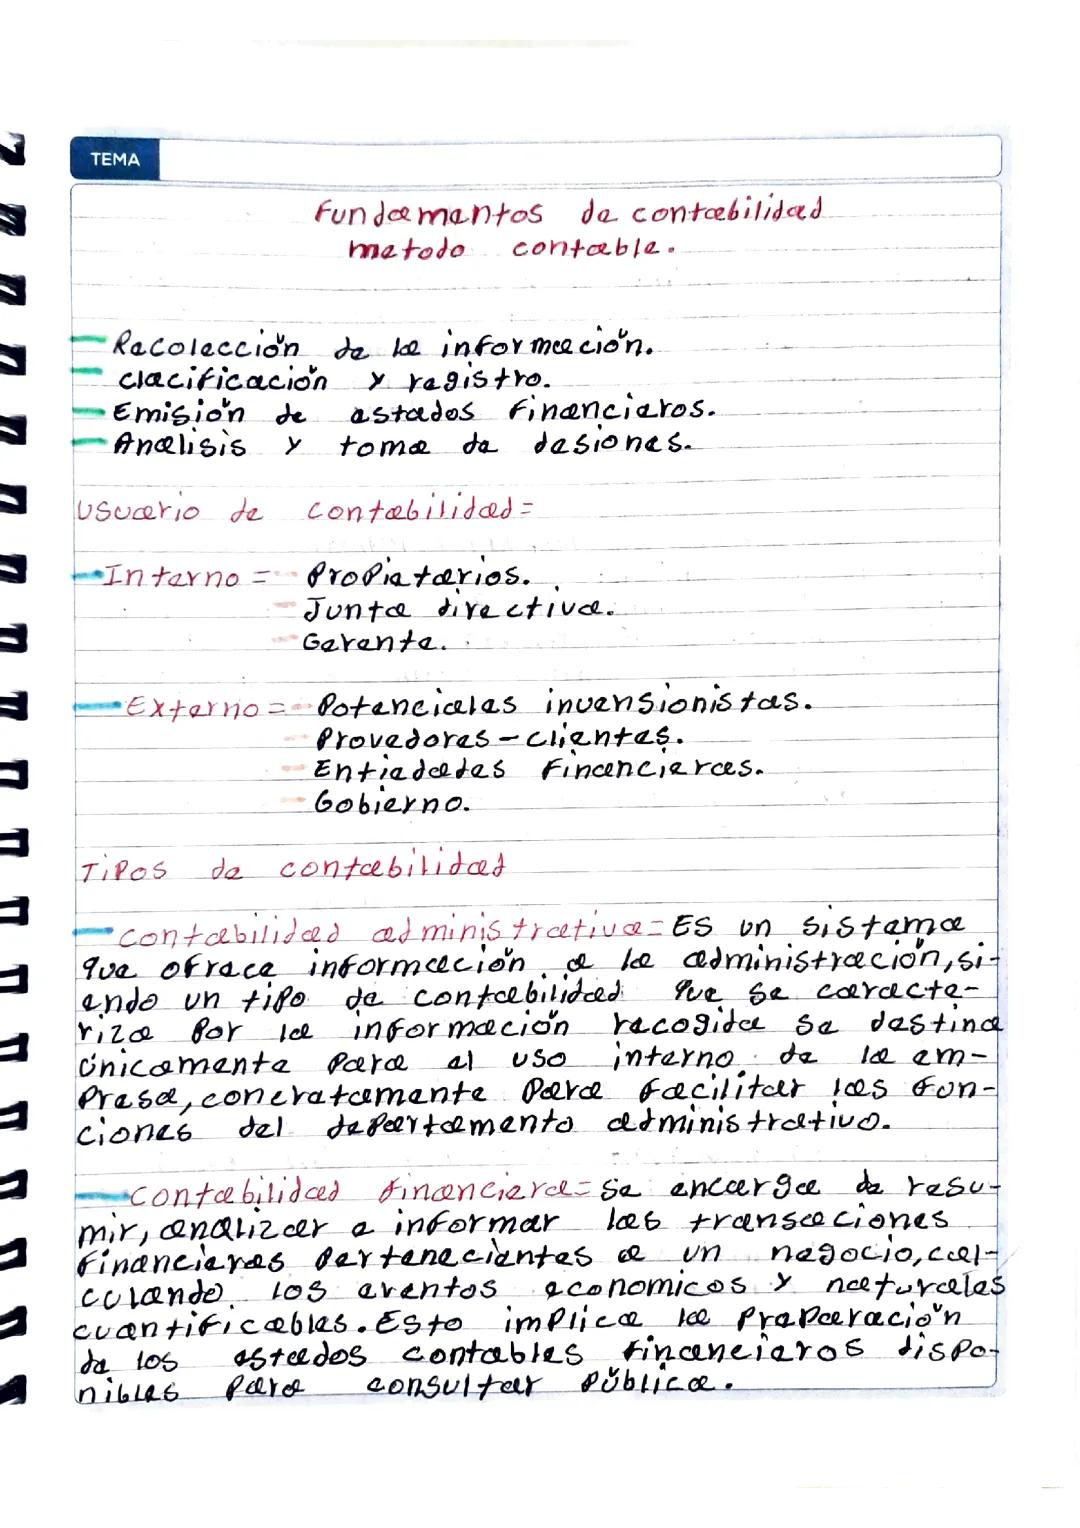 TEMA
Fundamentos de contabilidad
metodo contable.
Recolección de la información.
clacificación y registro.
Emisión de estados financieros.
Analisis y toma de desiones.
usuario de contabilidad=
Interno = Propietarios.
Junta directiva.
Gerente.
Externo = Potenciales invensionistas.
Provedores - clientes.
Entiadades Financieras.
Gobierno.
Tipos de contabilidad
contabilidad administrativa= Es un sistema
que ofrece información a la administración, si-
endo un tipo de contabilidad que se caracte-
riza por la información recogida se destina
únicamente para el uso interno de la em-
presa, concretamente para facilitar las fun-
ciones del departamento administrativo.
contabilidad financiera= se encarga de resu-
mir, analizar e informar las transaciones
financieras pertenecientes a un negocio, cal-
culando los eventos economicos y naturales
cuantificables. Esto implica la preparación
de los estados contables financieros dispo-
nibles para consultar pública.